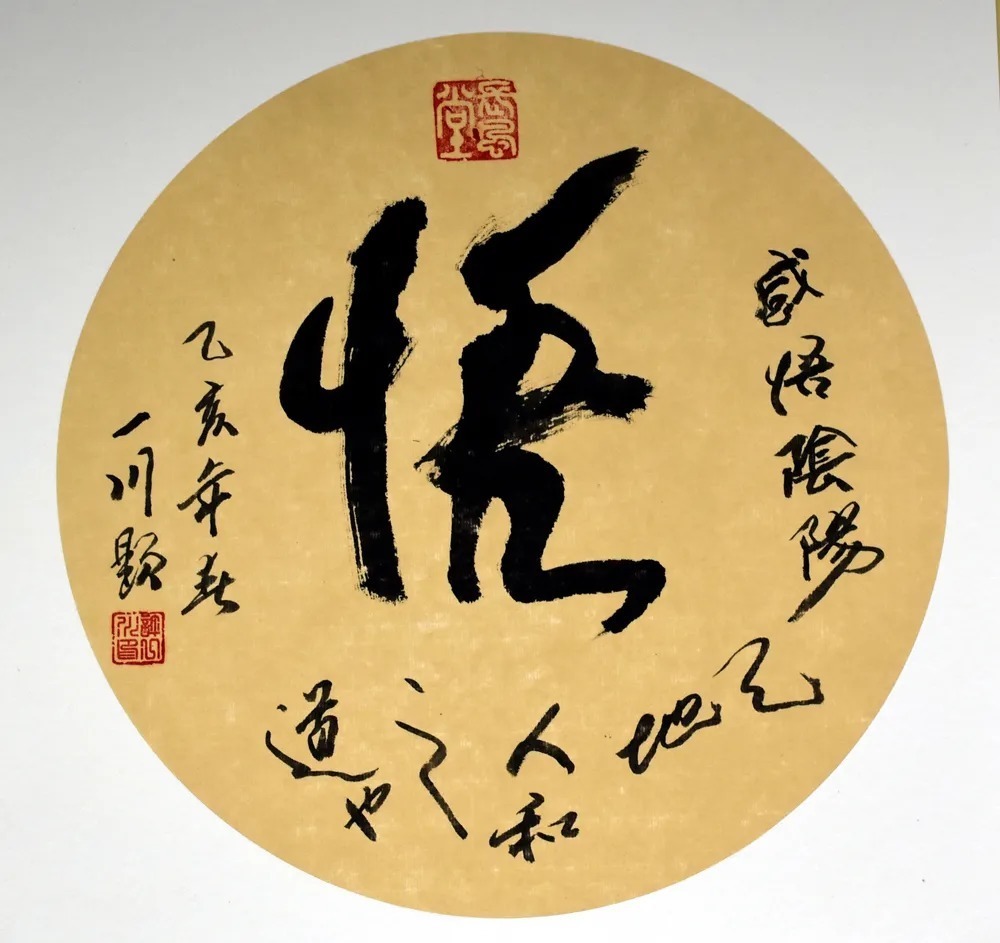 悟
感悟陰陽
天地
人和
之
道也
乙亥年春
一川題